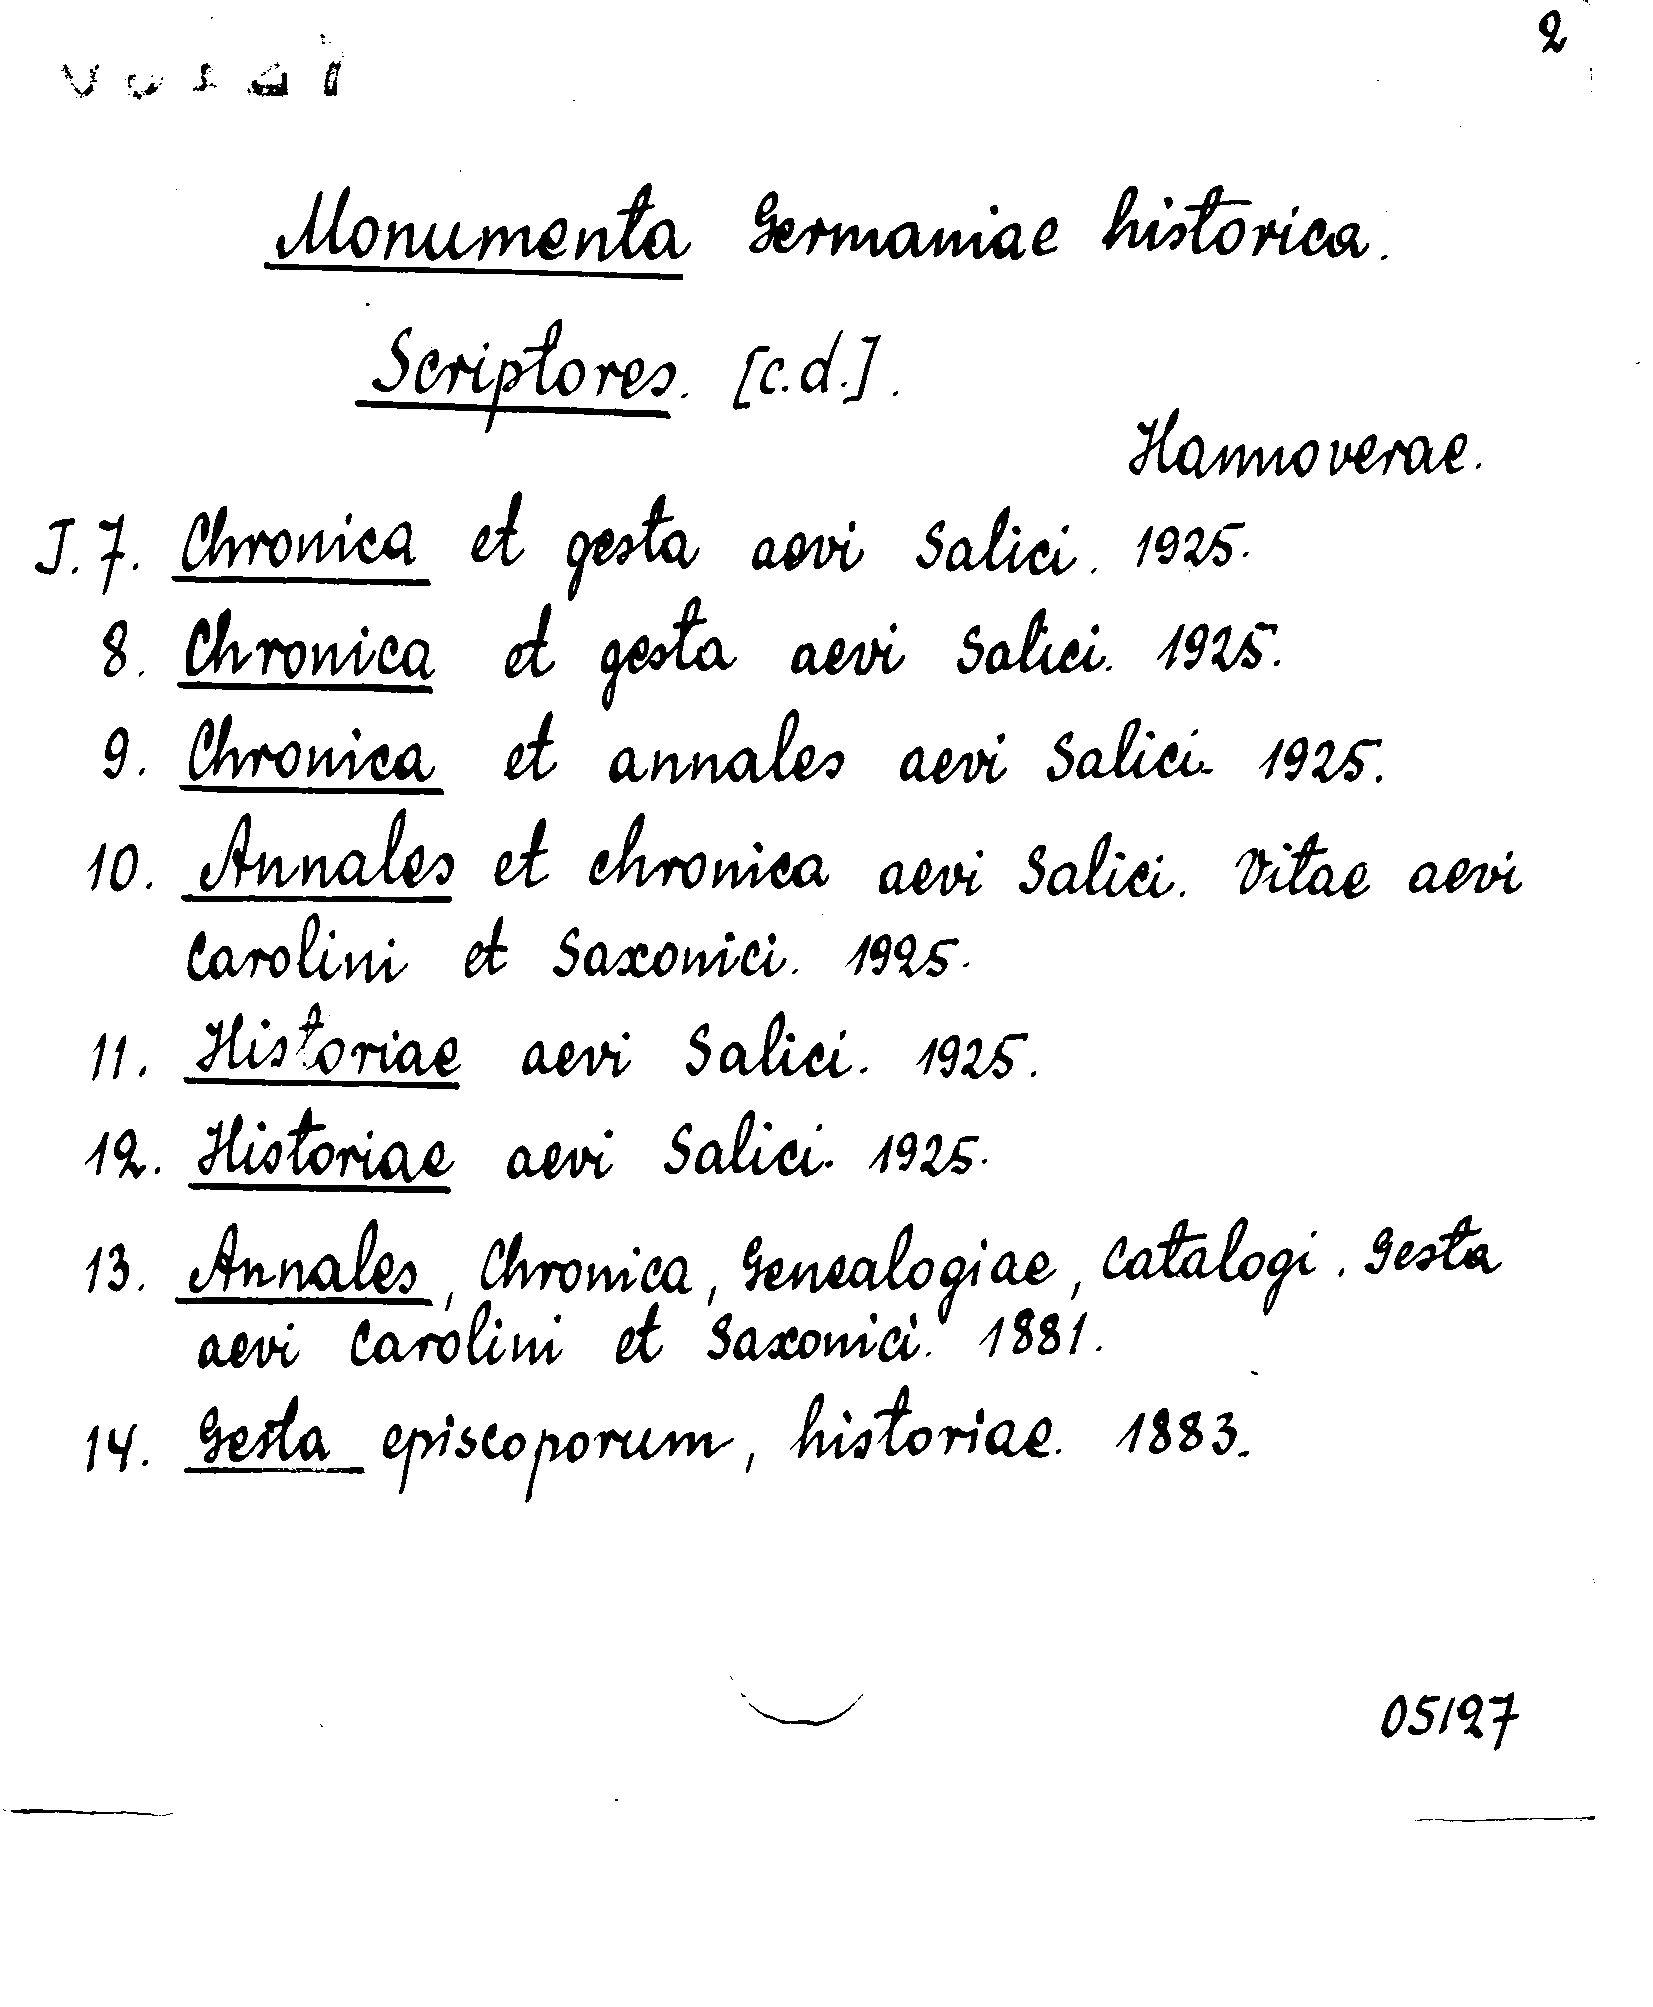 2
Monumenta Germaniae historica.
Scriptores. [c.d.].
Hannoverae.
J. 7. Chronica et gesta aevi Salici. 1925.
8. Chronica et gesta aevi Salici. 1925.
9. Chronica et annales aevi Salici. 1925.
10. Annales et chronica aevi Salici. Vitae aevi
Carolini et Saxonici. 1925.
11. Historiae aevi Salici. 1925.
12. Historiae aevi Salici. 1925.
13. Annales, Chronica, Genealogiae, Catalogi. Gesta
aevi Carolini et Saxonici. 1881.
14. Gesta episcoporum, historiae. 1883.
05127